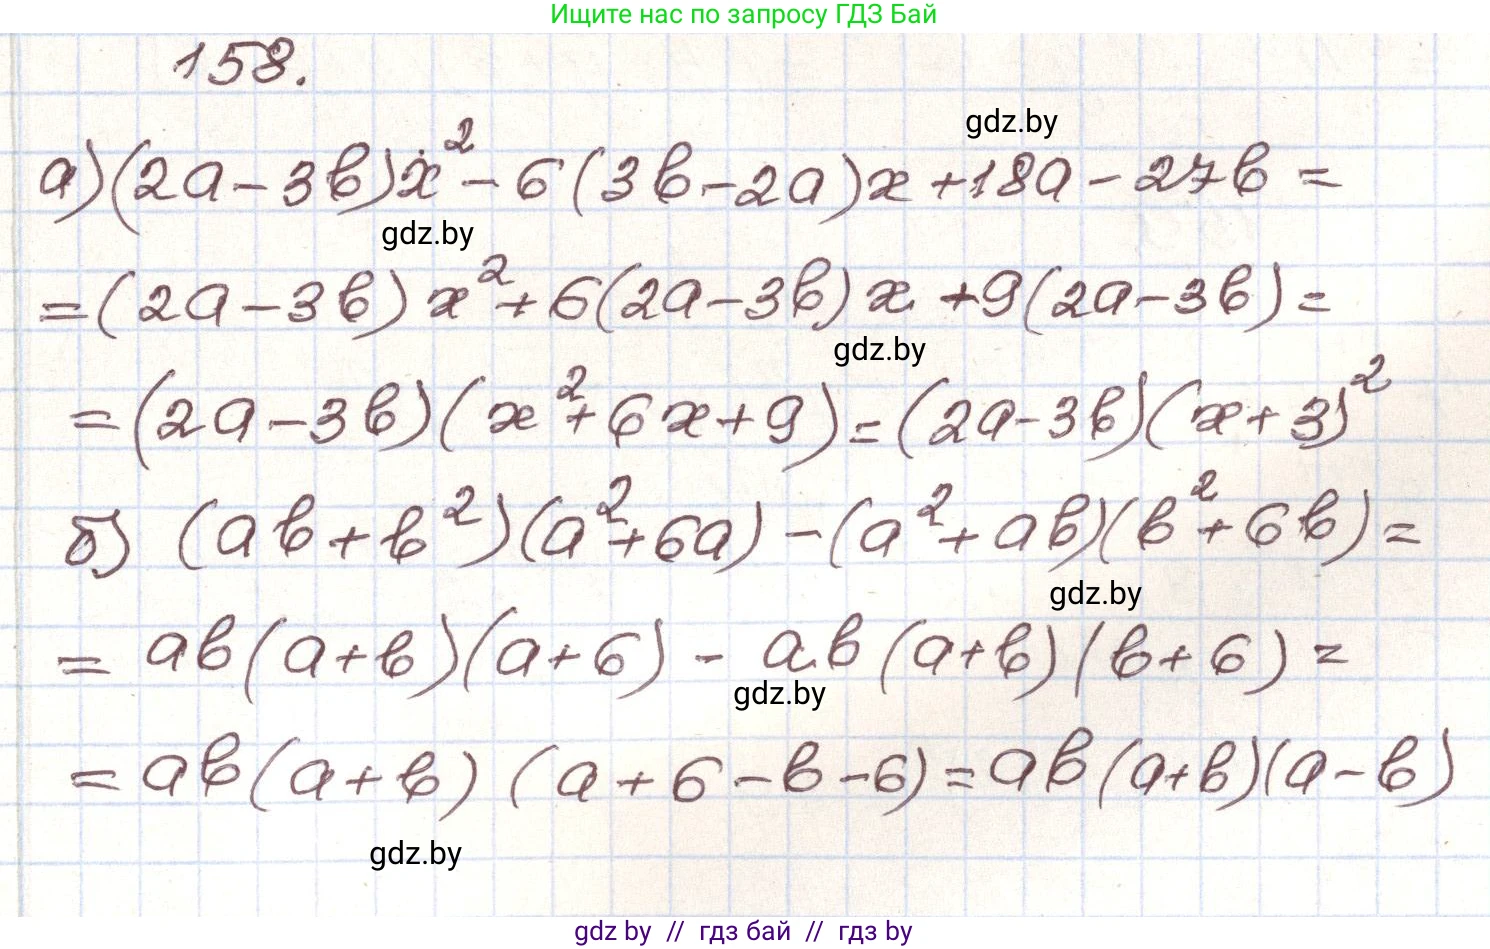 Ищите нас по запросу ГДЗ Бай
158.
gdz.by
а) (2a-3b)x²-6(3b-2a)x+18a-27b=
gdz.by
=(2a-3b)x²+6(2a-3b)x+9(2a-3b)=
gdz.by
=(2a-3b)(x²+6x+9)=(2a-3b)(x+3)²
б) (ab+b²)(a²+6a)-(a²+ab)(b²+6b)=
gdz.by
=ab(a+b)(a+6)-ab(a+b)(b+6)=
gdz.by
=ab(a+b)(a+6-b-6)=ab(a+b)(a-b)
gdz.by
gdz by // гдз бай // гдз by